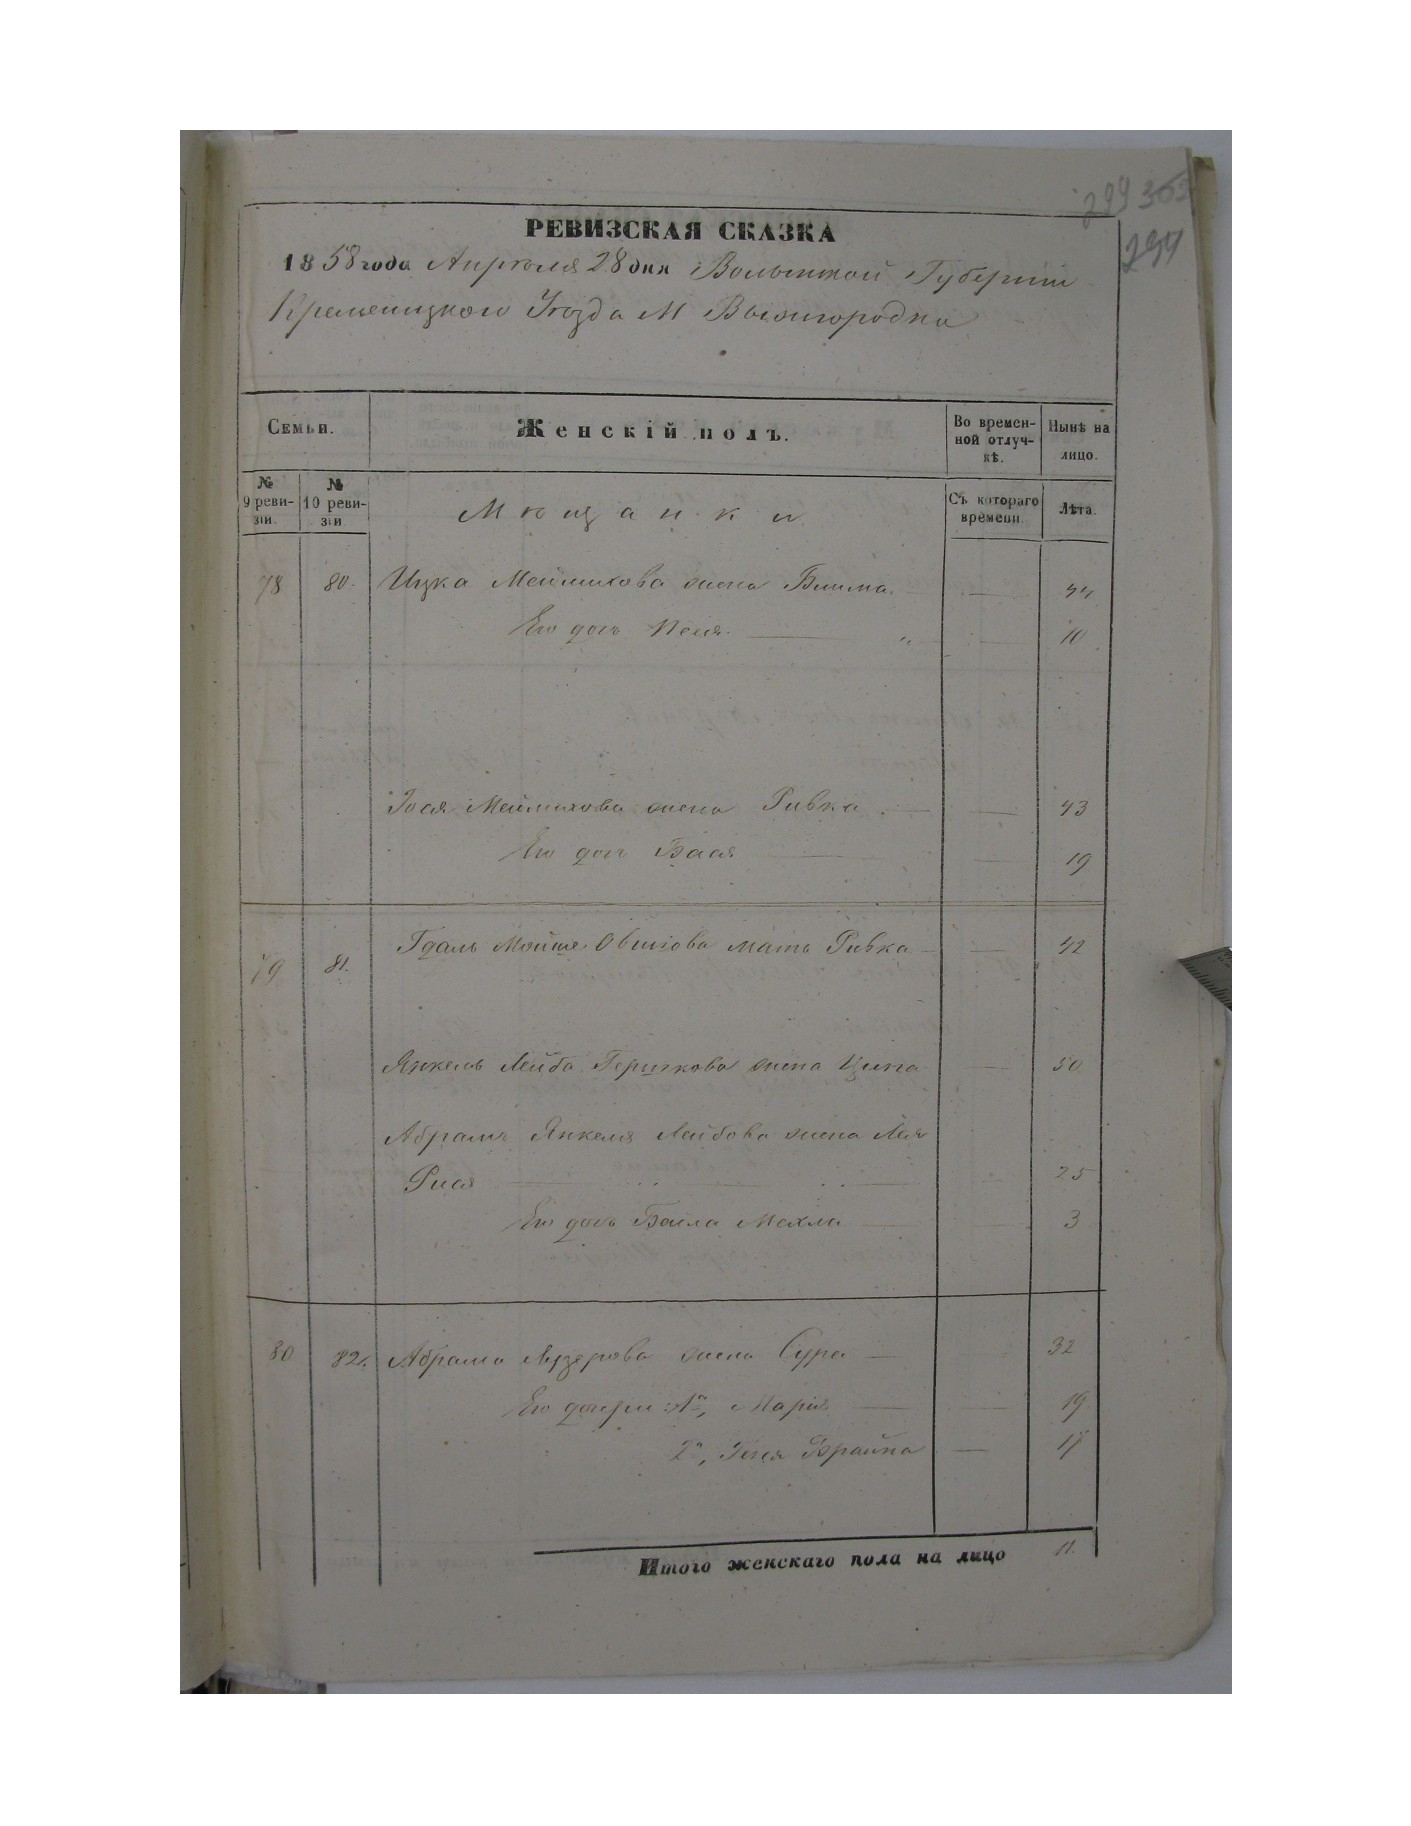 299 303
294
РЕВИЗСКАЯ СКАЗКА
1858 года Апреля 28 дня Волынской Губерніи
Кременецкого Уезда М Вышгородка
Семьи.
Женскій полъ.
Во времен-
ной отлуч-
кѣ.
Нынѣ на
лицо.
№
9 реви-
зіи.
№
10 реви-
зіи.
Мѣщанки
Съ котораго
времени.
Лѣта.
78 80. Ицка жена Блима 44
Его дочь Песя 10
жена Ривка 43
Его дочь Бася 19
79 81. Гдаль Мойше Овшіова мать Ривка 42
Янкель Лейба Гершкова жена Ципа 50
Абрамъ Янкеля Лейбова жена Лея
Рися 25
Его дочь Бейла Махля 3
80 82. Абрама Лузерова жена Сура 32
Его дочери: 1я, Марія 19
2я, Брайна 17
Итого женскаго пола на лицо 11.